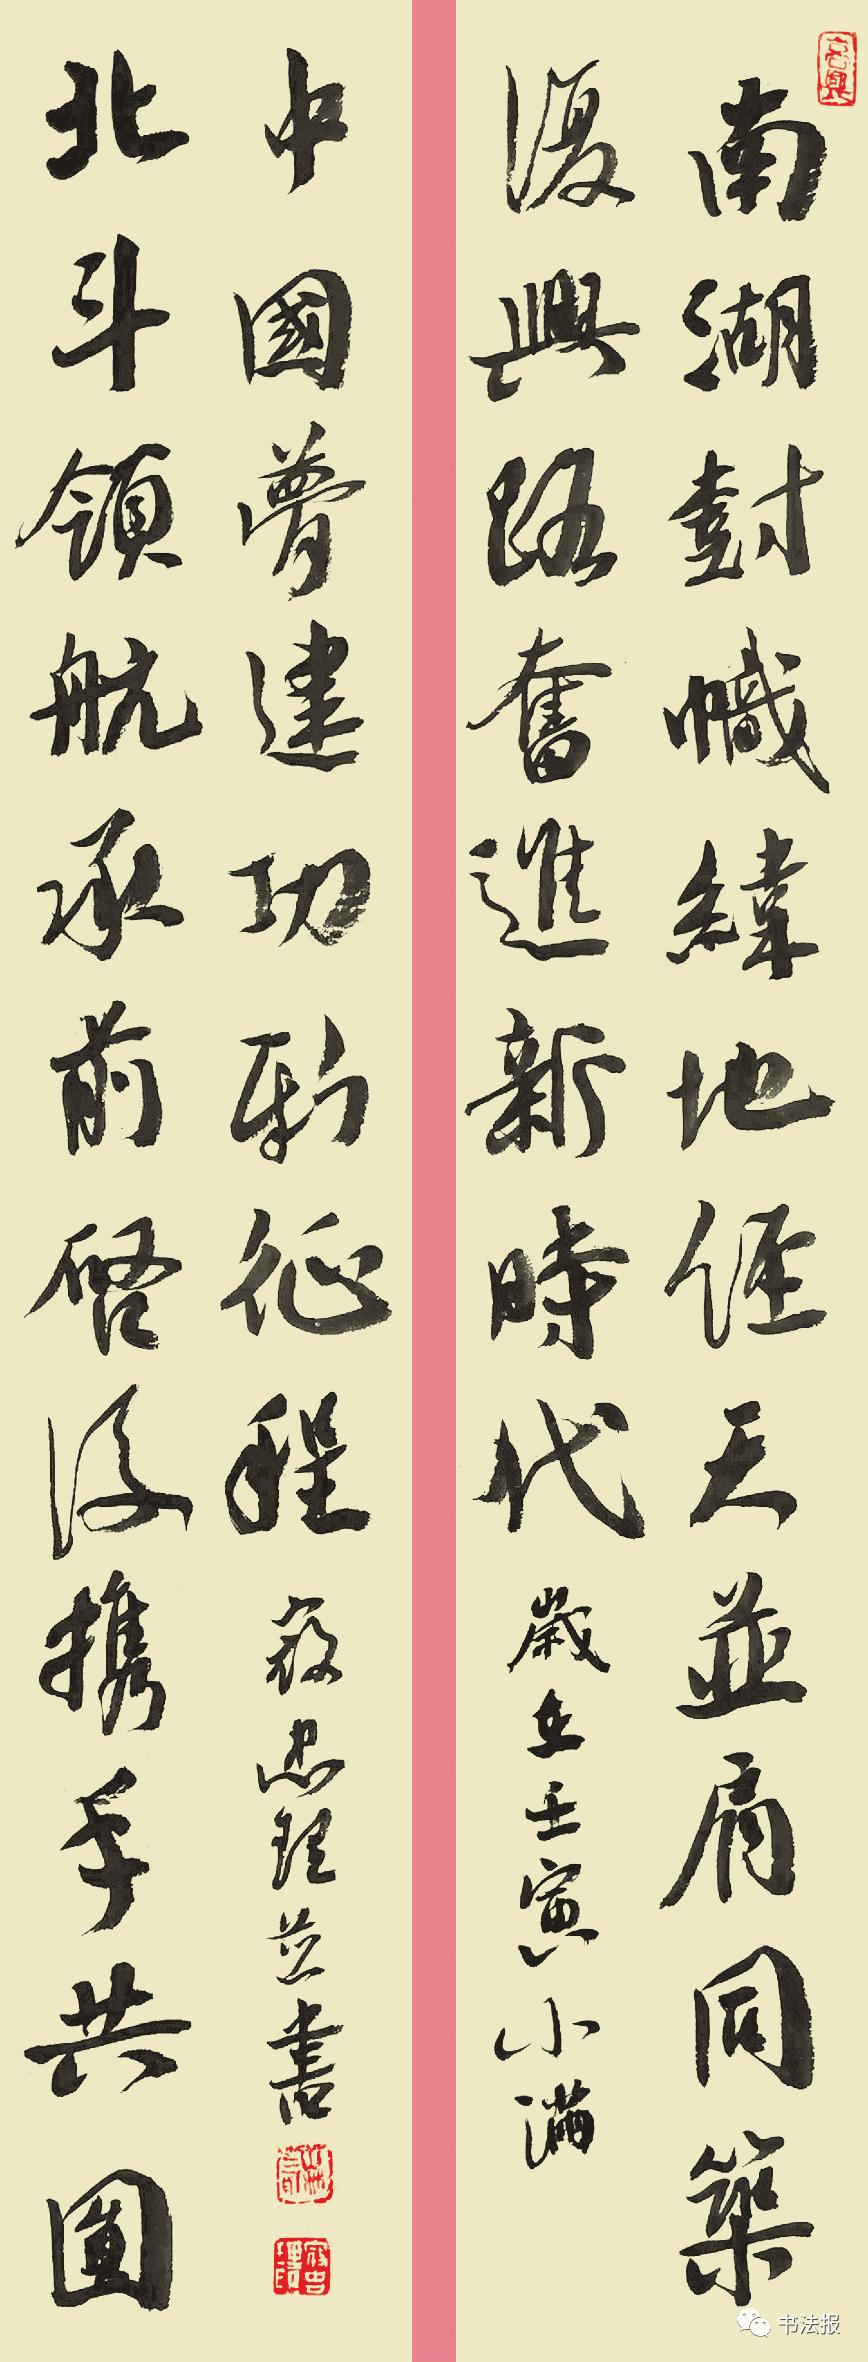 南湖尌幟緯地經天並肩同築
復興路奮進新時代
歲在壬寅小滿
北斗領航承前啓後携手共圓
中國夢建功新征程
寇忠理並書
寇忠理印
书法报